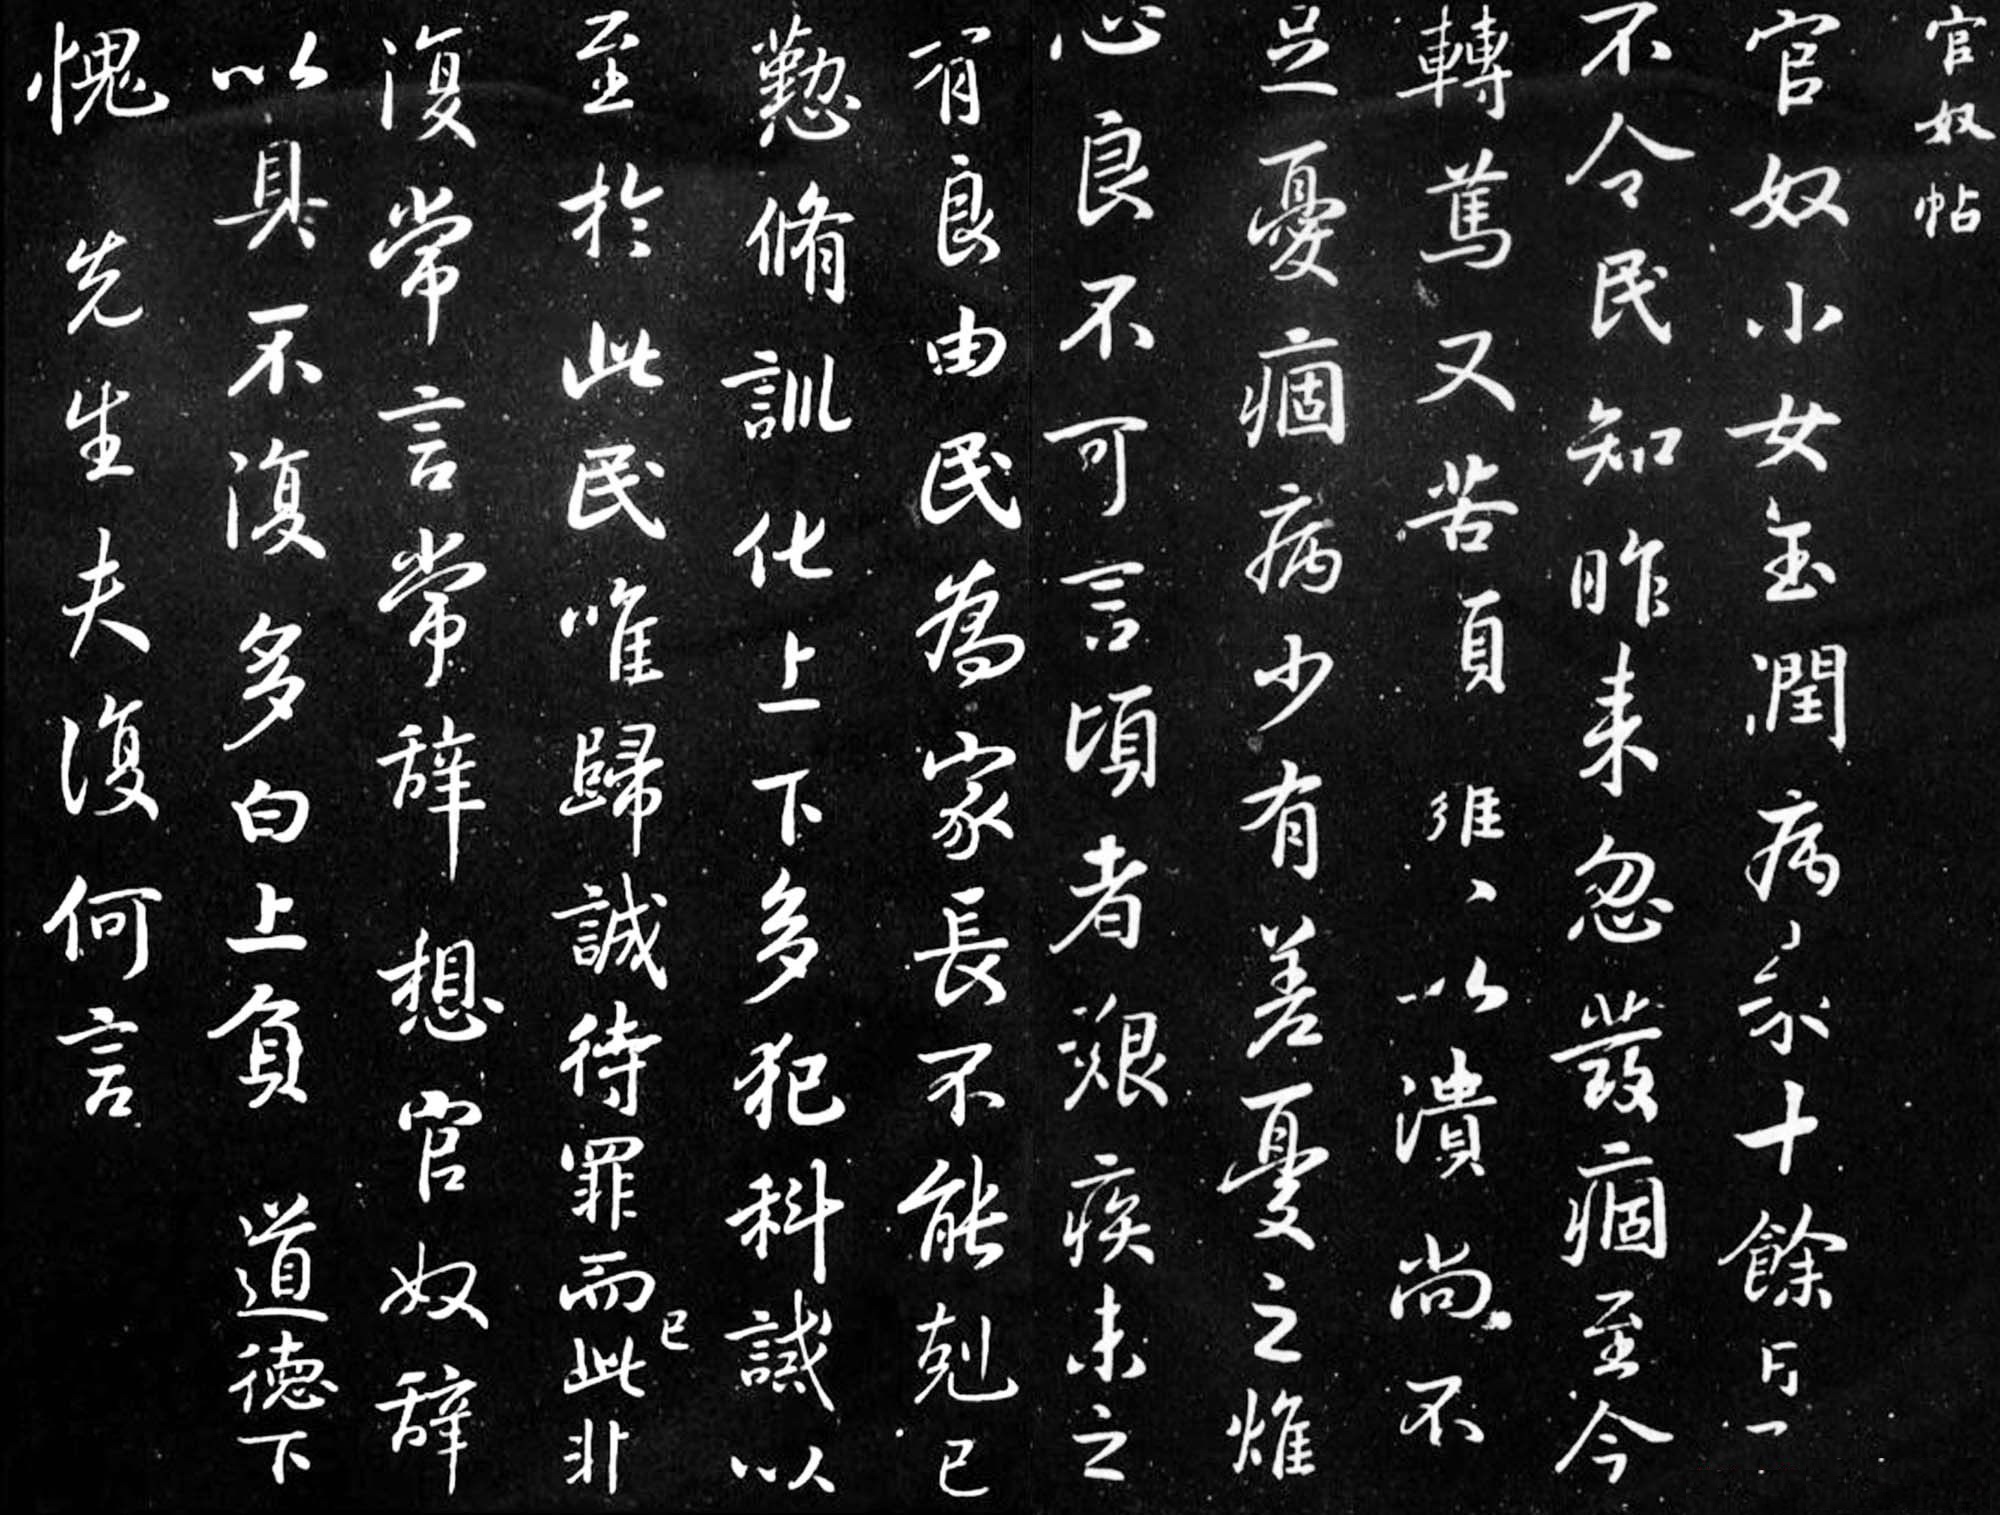 官奴帖
官奴小女玉潤病来十餘日了
不令民知昨来忽發痼至今
轉篤又苦頭癰頭癰以潰尚不
足憂痼病少有差憂之燋
心良不可言頃者艱疾未之
有良由民為家長不能剋己
懃脩訓化上下多犯科誡以
至於此民唯歸誠待罪而已此非
復常言常辞想官奴辞
以具不復多白上負道德下
愧先生夫復何言